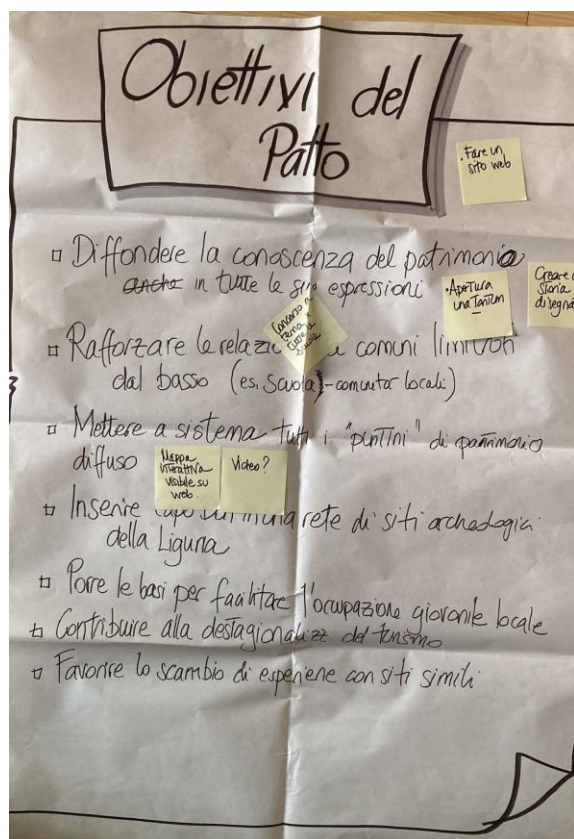 Obiettivi del
Patto
. Fare un
sito web
Diffondere la conoscenza del patrimonio
anche in tutte le sue espressioni
. Apertura
una Tantum
Creare
storia
disegna
Concorso a
tema x
Rafforzare le relazio comuni limitrofi
dal basso (es. Scuola)-comunità locali)
Mettere a sistema tutti i "puntini" di patrimonio
diffuso
Mappa
interattiva
visibile su
web.
Video?
Inserire Capo in una rete di siti archeologici
della Liguria
Porre le basi per facilitare l'occupazione giovanile locale
Contribuire alla destagionalizz del turismo
Favorire lo scambio di esperienze con siti simili